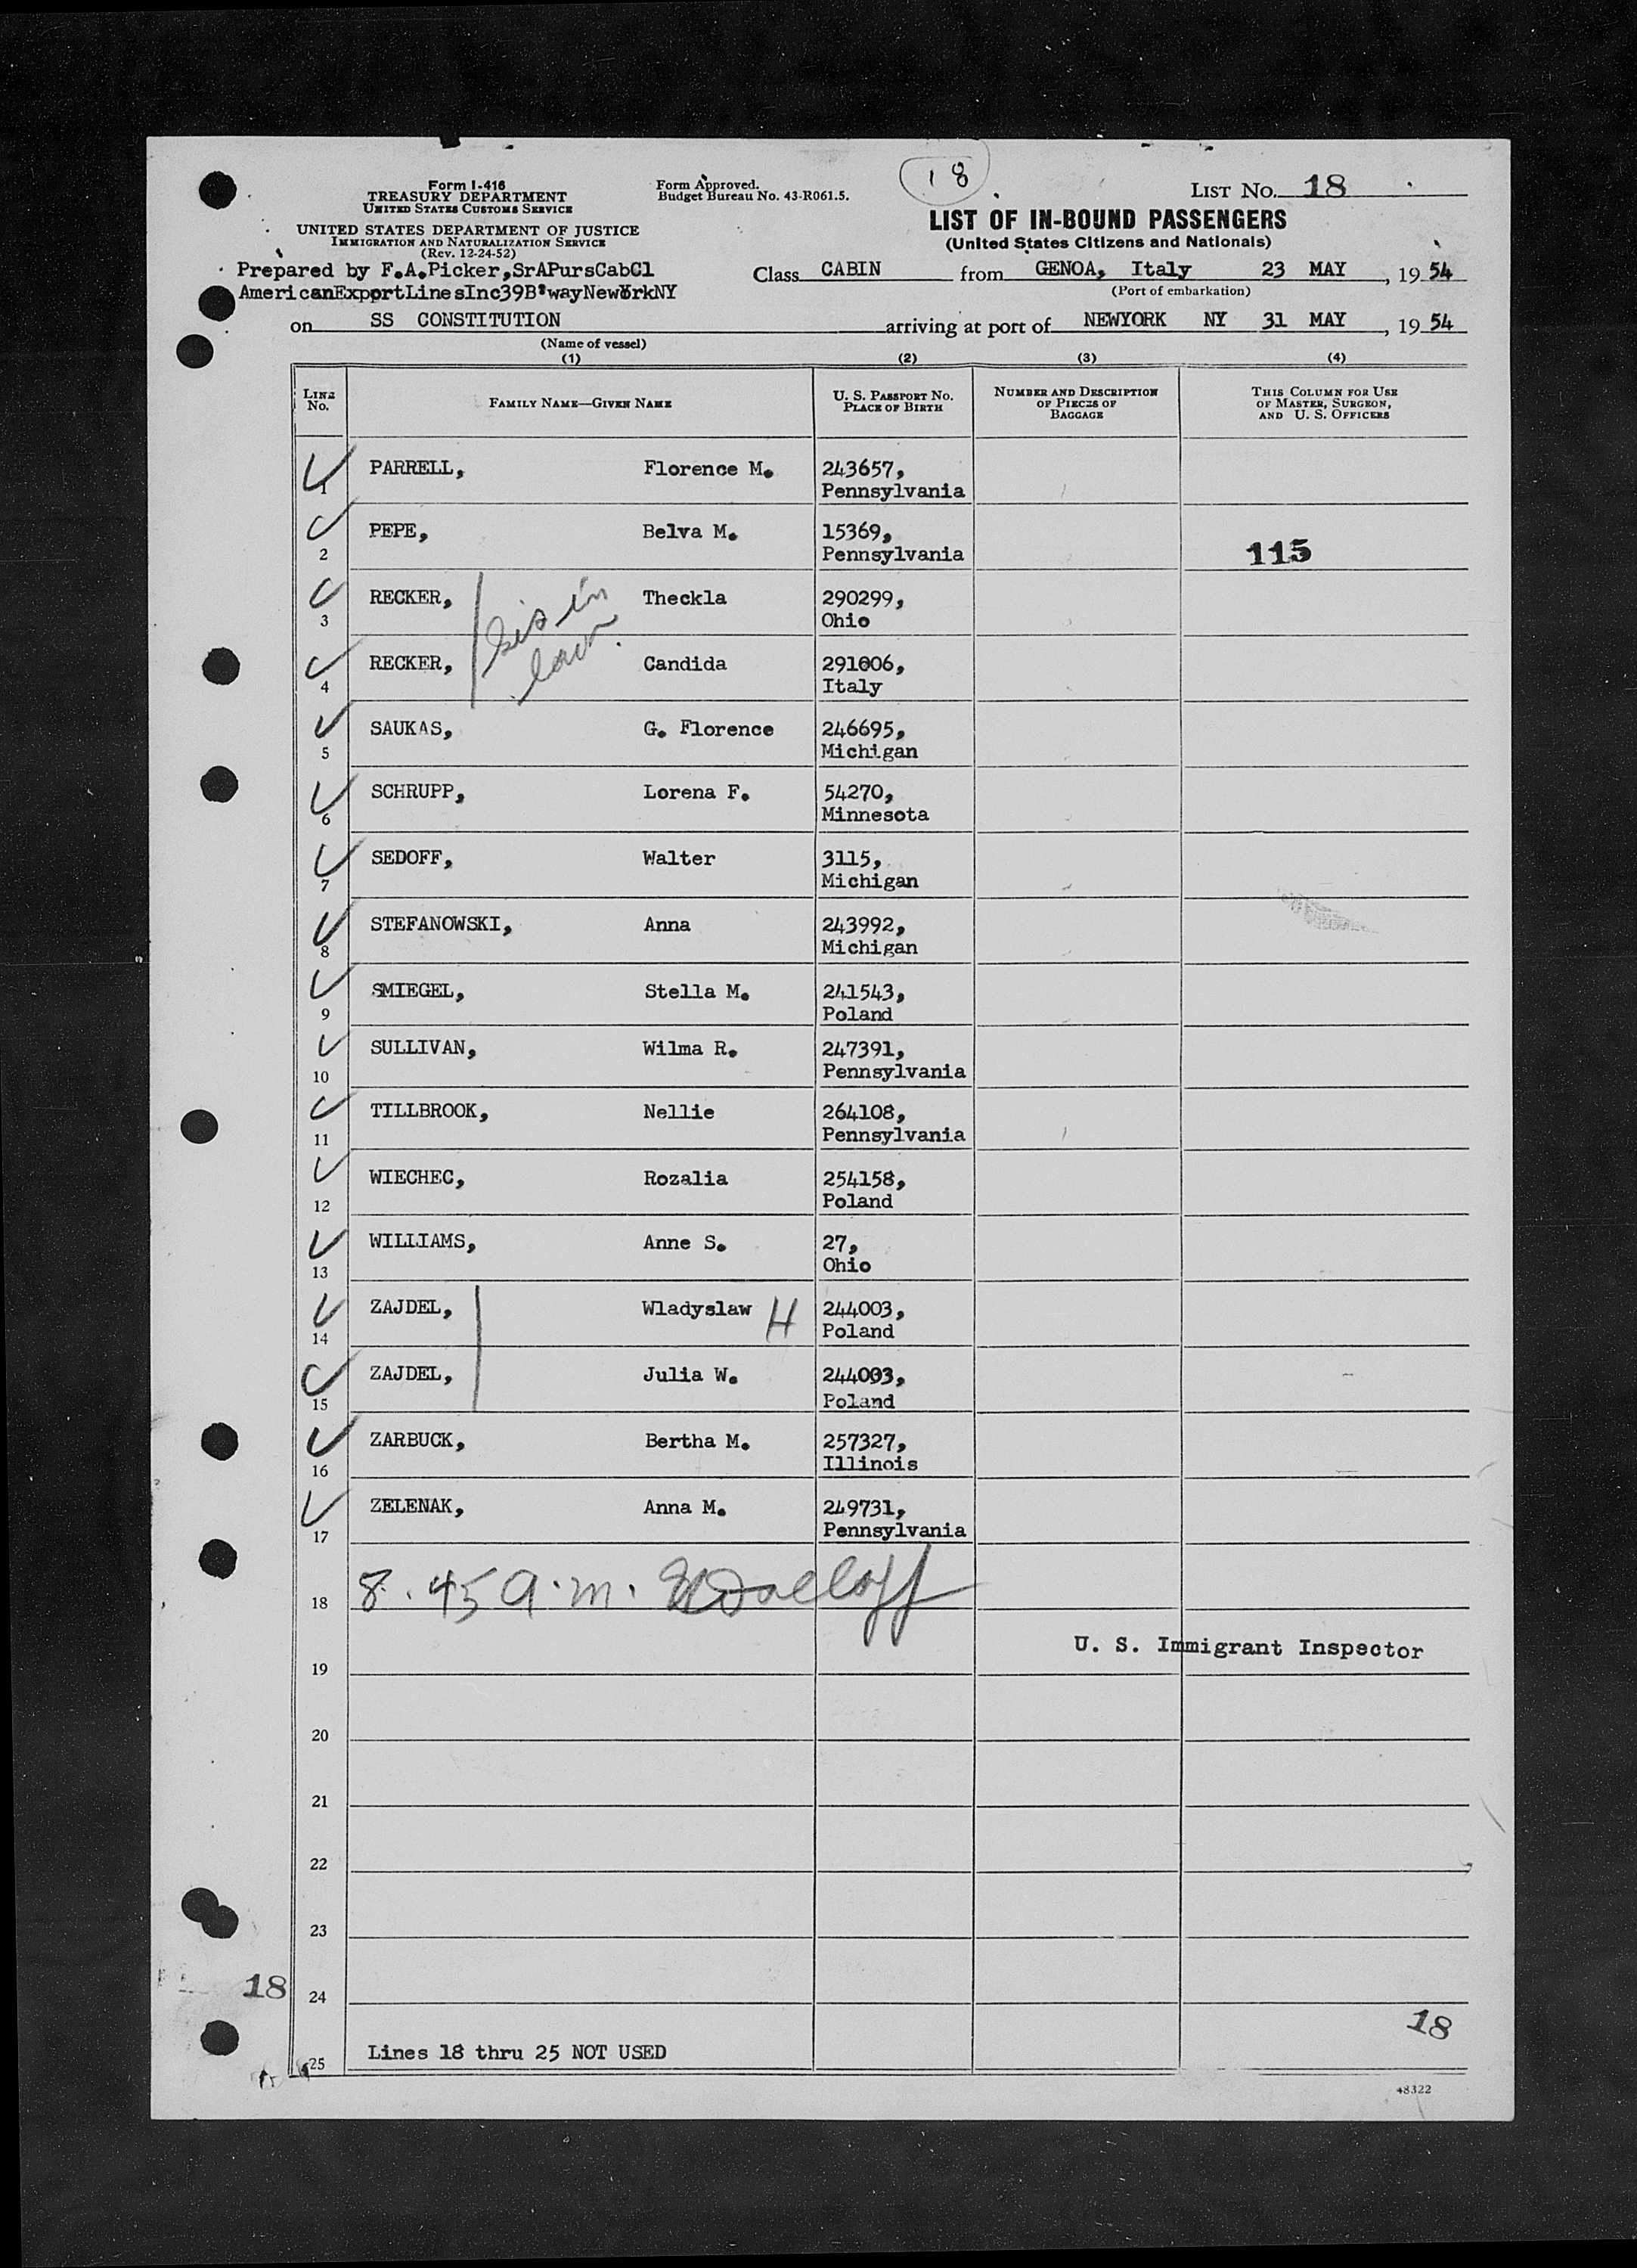 18
Form I-416
TREASURY DEPARTMENT
UNITED STATES CUSTOMS SERVICE
UNITED STATES DEPARTMENT OF JUSTICE
IMMIGRATION AND NATURALIZATION SERVICE
(Rev. 12-24-52)
Prepared by F.A.Picker,SrAPursCabCl
AmericanExportLinesInc39B'wayNewYorkNY
Form Approved.
Budget Bureau No. 43-R061.5.
LIST NO. 18
LIST OF IN-BOUND PASSENGERS
(United States Citizens and Nationals)
Class CABIN from GENOA, Italy 23 MAY, 1954
(Port of embarkation)
on SS CONSTITUTION arriving at port of NEWYORK NY 31 MAY, 1954
(Name of vessel)
(1) (2) (3) (4)
LINE NO. FAMILY NAME—GIVEN NAME U. S. PASSPORT NO. PLACE OF BIRTH NUMBER AND DESCRIPTION OF PIECES OF BAGGAGE THIS COLUMN FOR USE OF MASTER, SURGEON, AND U. S. OFFICERS
1 PARRELL, Florence M. 243657,
Pennsylvania
2 PEPE, Belva M. 15369,
Pennsylvania 115
3 RECKER, Theckla 290299,
Ohio
sis in
law.
4 RECKER, Candida 291006,
Italy
5 SAUKAS, G. Florence 246695,
Michigan
6 SCHRUPP, Lorena F. 54270,
Minnesota
7 SEDOFF, Walter 3115,
Michigan
8 STEFANOWSKI, Anna 243992,
Michigan
9 SMIEGEL, Stella M. 241543,
Poland
10 SULLIVAN, Wilma R. 247391,
Pennsylvania
11 TILLBROOK, Nellie 264108,
Pennsylvania
12 WIECHEC, Rozalia 254158,
Poland
13 WILLIAMS, Anne S. 27,
Ohio
14 ZAJDEL, Wladyslaw H 244003,
Poland
15 ZAJDEL, Julia W. 244003,
Poland
16 ZARBUCK, Bertha M. 257327,
Illinois
17 ZELENAK, Anna M. 249731,
Pennsylvania
18 8.45 a.m.
U. S. Immigrant Inspector
19
20
21
22
23
18
24
18
25 Lines 18 thru 25 NOT USED
48322